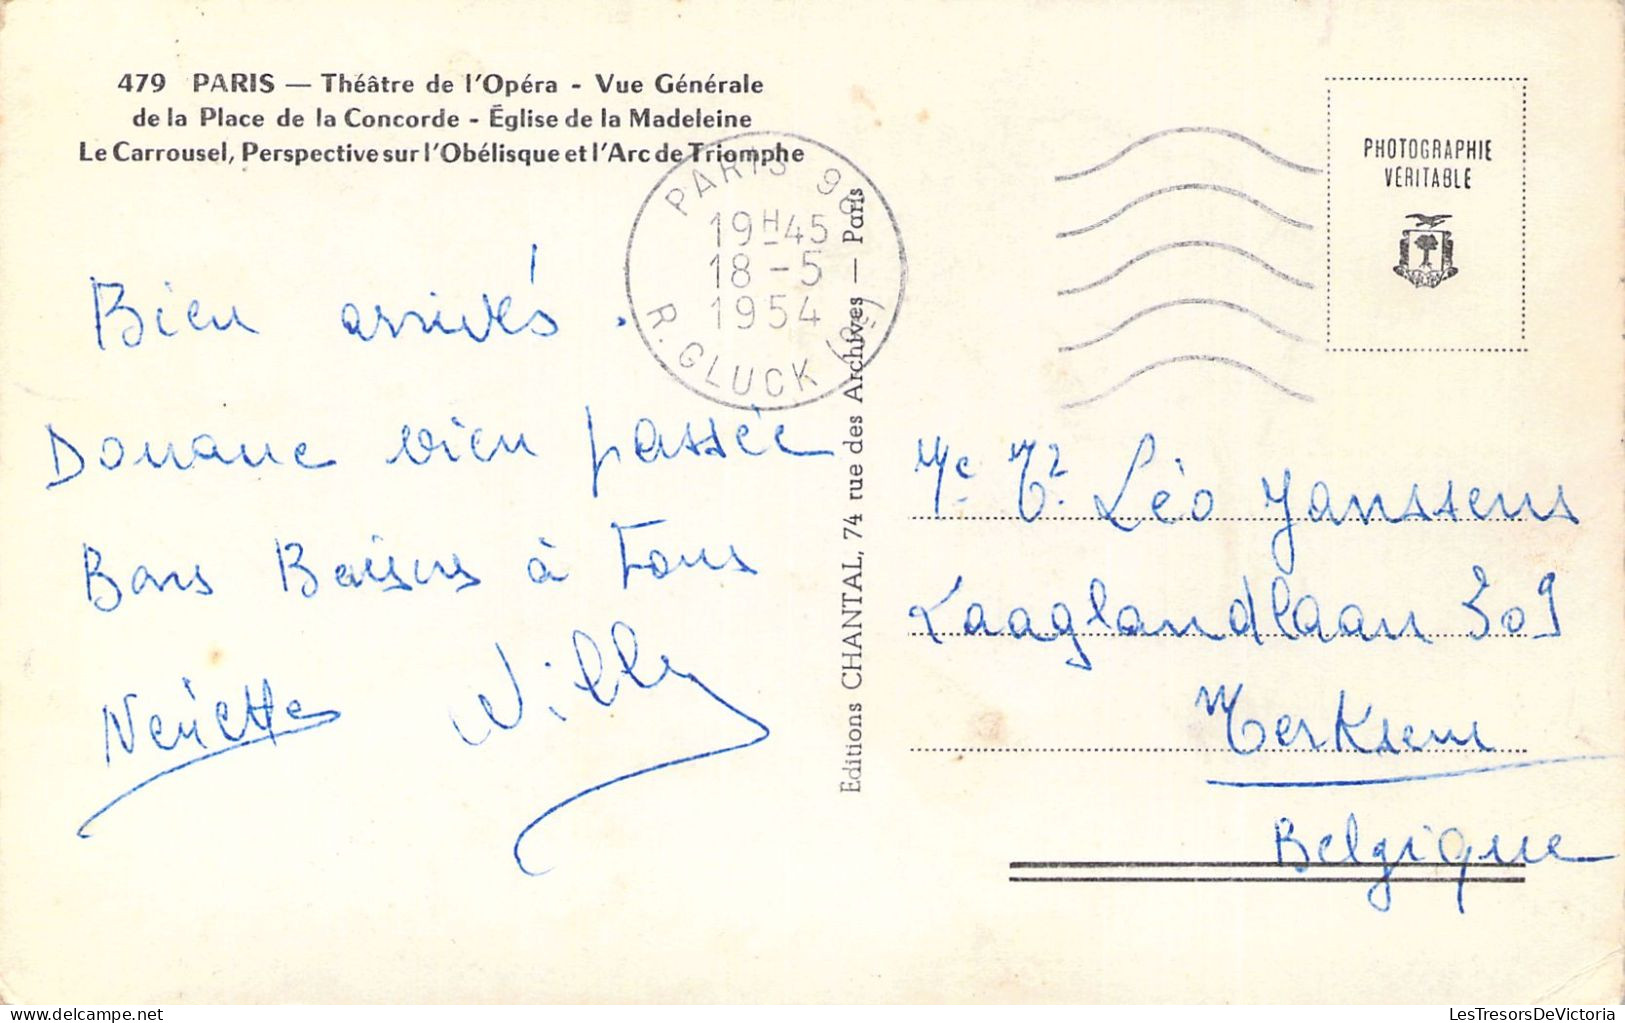 479 PARIS — Théâtre de l'Opéra - Vue Générale
de la Place de la Concorde - Église de la Madeleine
Le Carrousel, Perspective sur l'Obélisque et l'Arc de Triomphe
PARIS 98
19H45
18 - 5
1954
R. GLUCK (9e)
PHOTOGRAPHIE
VÉRITABLE
Bien arrivés.
Douane bien passée
Bons Baisers à Tous
Willy
Editions CHANTAL, 74 rue des Archives — Paris
Léo Janssens
Laaglandlaan 309
Merksem
Belgique
LesTresorsDeVictoria
www.delcampe.net